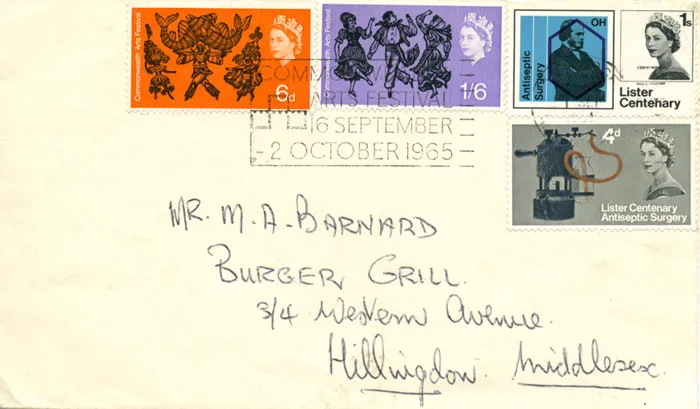 Commonwealth Arts Festival
6d
Commonwealth Arts Festival
1/6
Antiseptic
Surgery
OH
1s
Lister
Centenary
4d
Lister Centenary
Antiseptic Surgery
ARTS FESTIVAL
16 SEPTEMBER
-2 OCTOBER 1965
MR. M. A. BARNARD
BURGER GRILL.
3/4 Western Avenue.
Hillingdon. Middlesex.